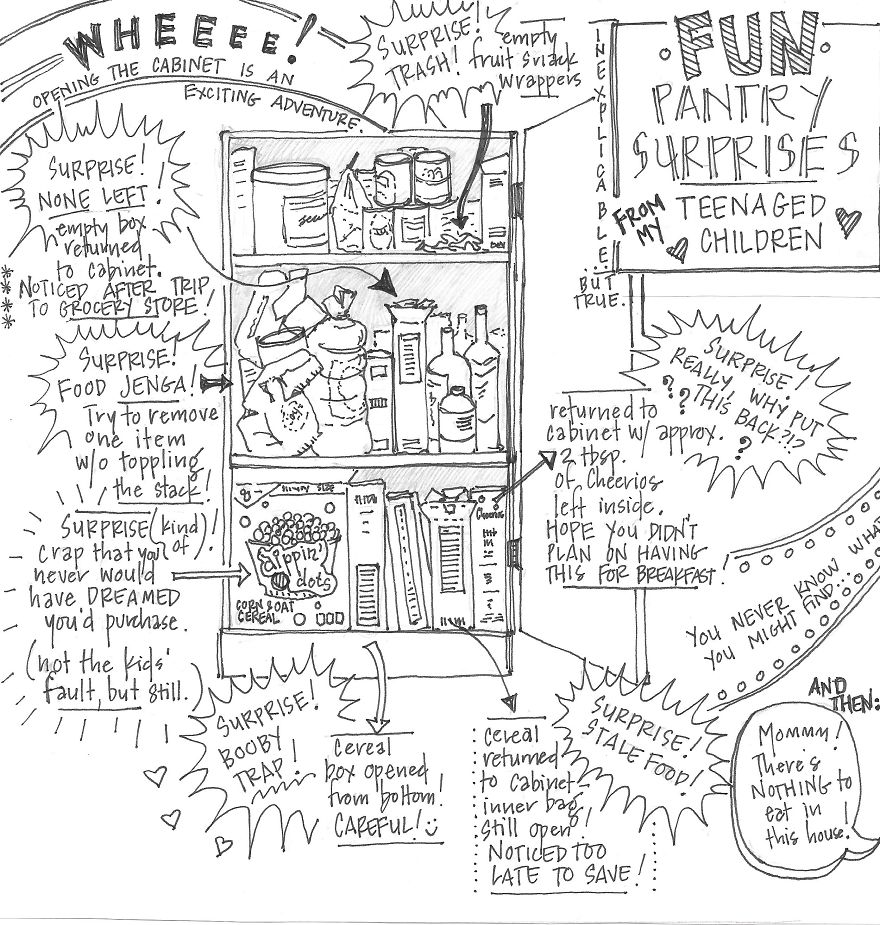 WHEEEE!
OPENING THE CABINET IS AN
EXCITING ADVENTURE.
SURPRISE!
TRASH!
empty
fruit snack
wrappers
INEXPLICABLE...
BUT
TRUE.
FUN
PANTRY
SURPRISES
FROM
MY
TEENAGED
CHILDREN
SURPRISE!
NONE LEFT!
empty box
returned
to cabinet.
* NOTICED AFTER TRIP
* TO GROCERY STORE!
*
*
SURPRISE!
FOOD JENGA!
Try to remove
one item
w/o toppling
the stack!
SURPRISE (kind of)!
Crap that you
never would
have DREAMED
you'd purchase.
(not the kids'
fault, but still.
SURPRISE!
REALLY, WHY PUT
THIS BACK?!?
? ? ?
returned to
cabinet w/ approx.
2 tbsp.
of Cheerios
left inside.
HOPE YOU DIDN'T
PLAN ON HAVING
THIS FOR BREAKFAST!
SIZE
Cheerios
dippin'
dots
CORN & OAT
CEREAL
YOU NEVER KNOW WHAT
YOU MIGHT FIND...
SURPRISE!
BOOBY
TRAP!
cereal
box opened
from bottom!
CAREFUL!
SURPRISE!
STALE FOOD!
cereal
returned
to cabinet,
inner bag
still open!
NOTICED TOO
LATE TO SAVE!
AND
THEN:
Mommy!
There's
NOTHING to
eat in
this house!